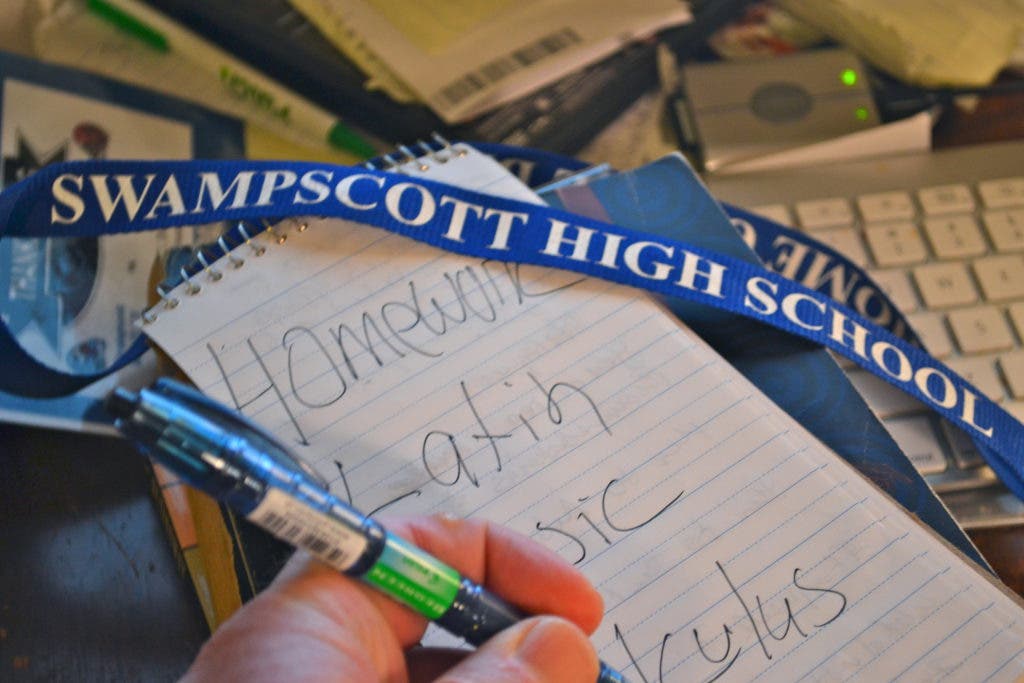 SWAMPSCOTT HIGH SCHOOL
Homework
Latin
sic
culus
THANK